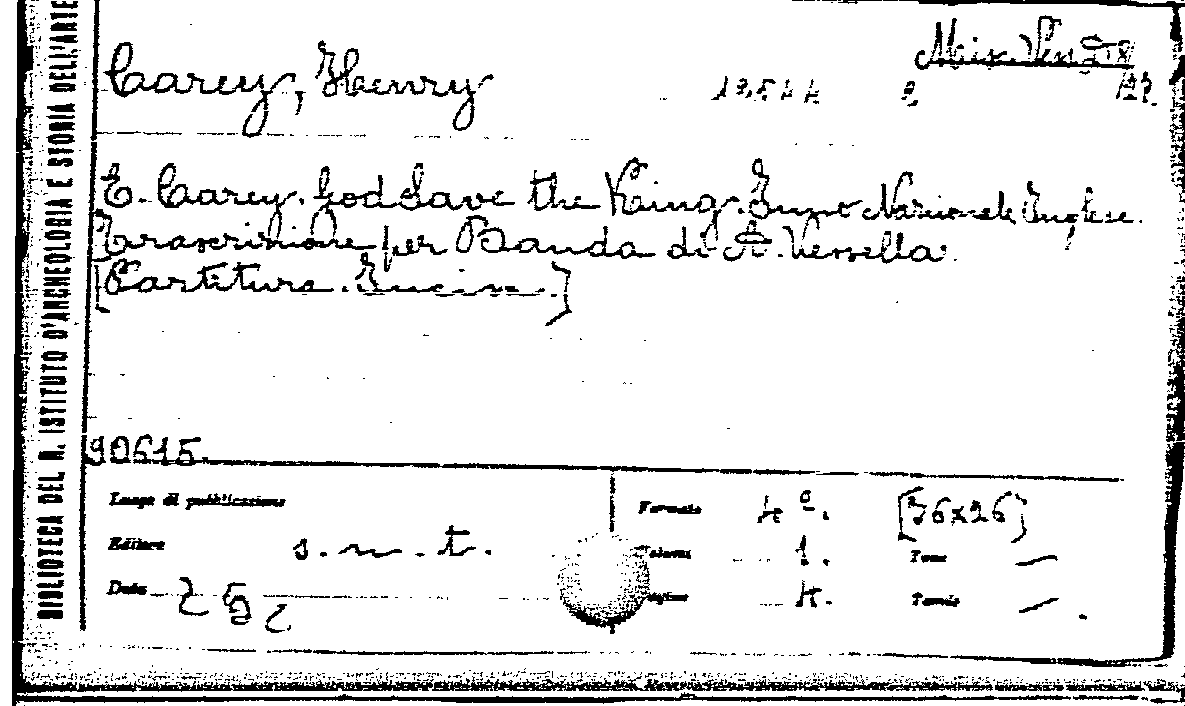 BIBLIOTECA DEL R. ISTITUTO D'ARCHEOLOGIA E STORIA DELL'ARTE
Carey, Henry
E. Carey. God Save the King. Inno Nazionale Inglese.
Trascrizione per Banda di A. Vessella.
[Partitura. Incisa.]
90615.
Luogo di pubblicazione
Editore s.n.t.
Data
Formato 4º. [36x26]
Volumi 1. Tomo —
Pagine 4. Tavole —.